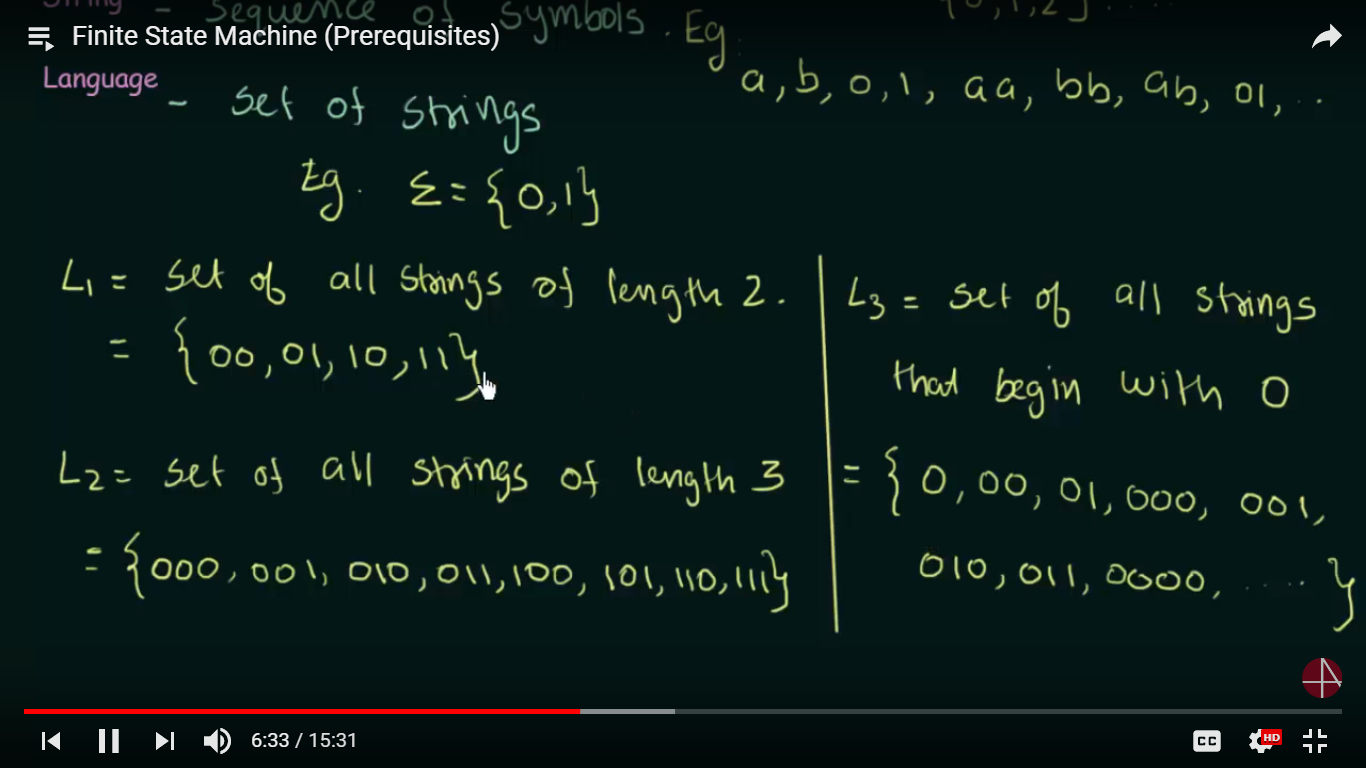 String - Sequence of Symbols. Eg
Finite State Machine (Prerequisites)
a, b, 0, 1, aa, bb, ab, 01, ..
Language - Set of strings
Eg. Σ = {0,1}
L1 = Set of all strings of length 2.
= {00, 01, 10, 11}
L2 = Set of all strings of length 3
= {000, 001, 010, 011, 100, 101, 110, 111}
L3 = Set of all strings
that begin with 0
= {0, 00, 01, 000, 001,
010, 011, 0000, ..... }
6:33 / 15:31
CC
HD